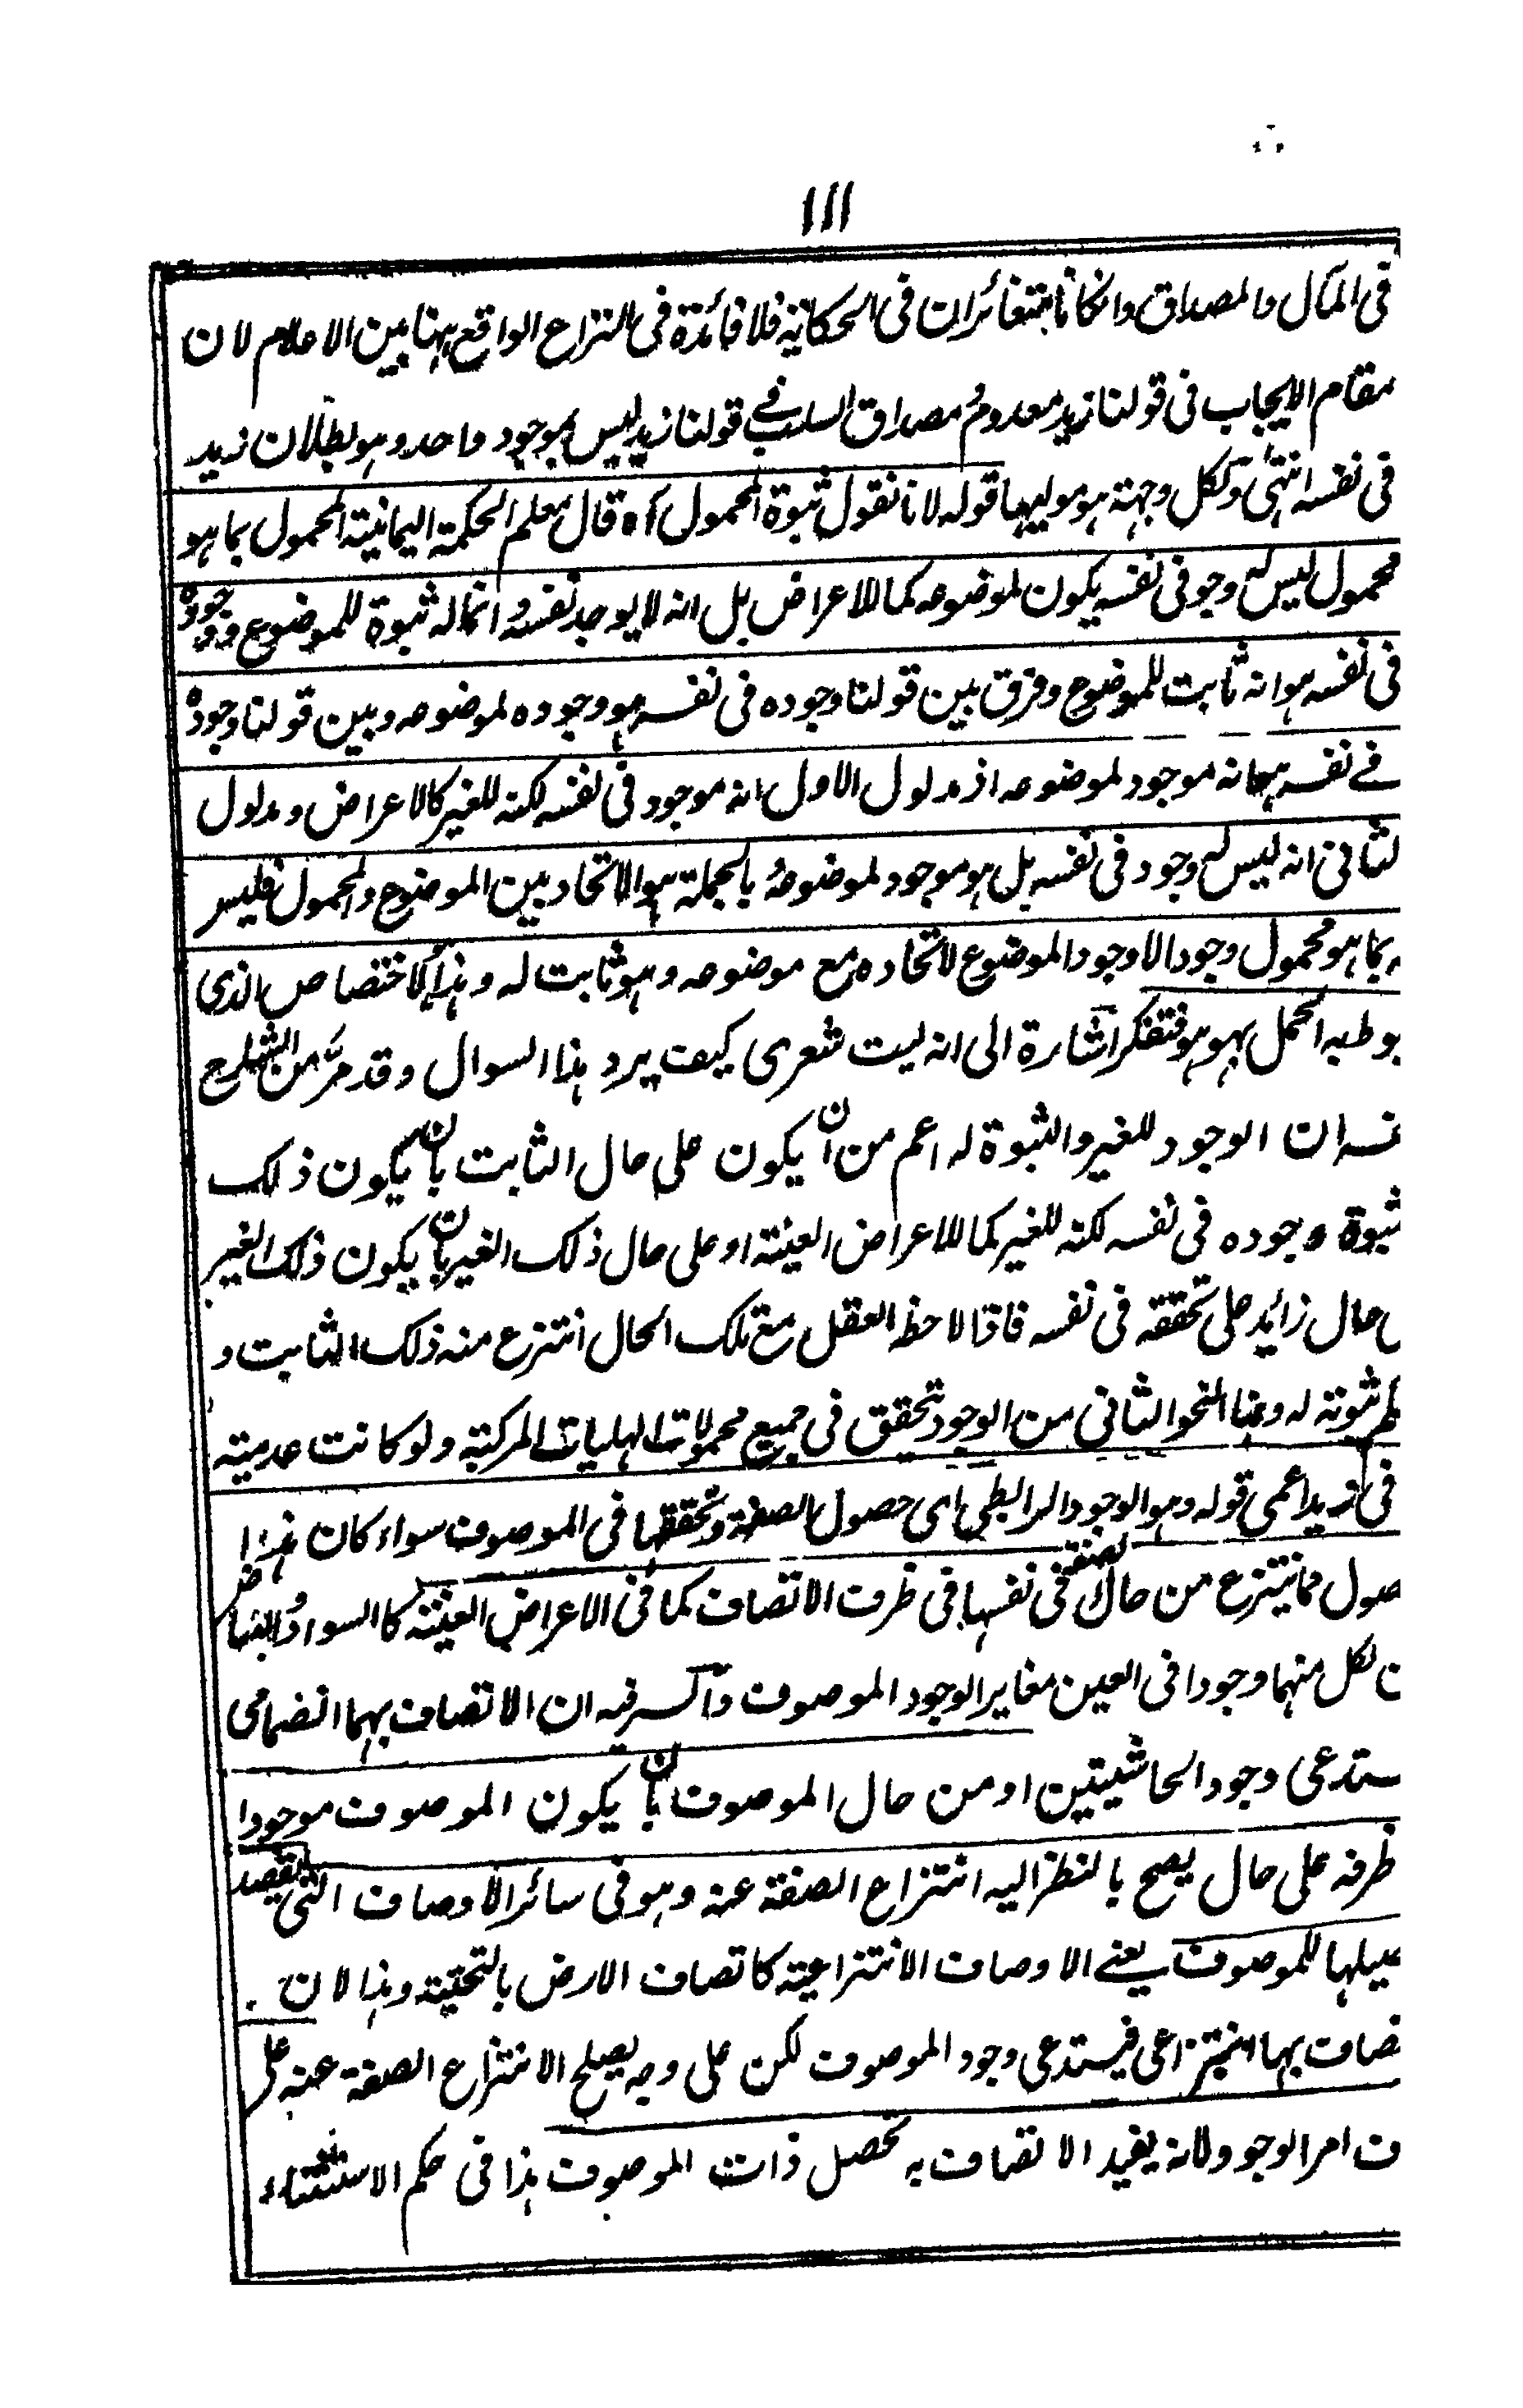 ١١١
فى المآل والمصداق وانكانا متغائران فى الحكاية فلا فائدة فى النزاع الواقع ههنا بين الاعلام لان
مقام الايجاب فى قولنا زيد معدوم مصداق السلب فے قولنا زيد ليس بموجود واحد وهو بطلان زيد
فى نفسه انتهى ولكل وجهة هو موليها قوله لانا نقول ثبوة المحمول اه قال معلم الحكمة اليمانية المحمول بما هو
محمول ليس له وجو فى نفسه يكون لموضوعه كما للاعراض بل انه لا يوجد نفسه وانما له ثبوة للموضوع ووجوده
فى نفسه هو انه ثابت للموضوع وفرق بين قولنا وجوده فى نفسه هو وجوده لموضوعه وبين قولنا وجوده
فے نفسه هو انه موجود لموضوعه اذ مدلول الاول انه موجود فى نفسه لكنه للغير كالاعراض ومدلول
لثانى انه ليس له وجود فى نفسه بل هو موجود لموضوعه وبالجملة هو الاتحاد بين الموضوع والمحمول فليس
بما هو محمول وجود الا وجود الموضوع لاتحاده مع موضوعه وهو ثابت له وهذا الاختصاص الذى
بوطبه الحمل بهو هو فتفكر اشارة الى انه ليت شعرى كيف يرد هذا السوال وقد مرّ من الشارح
نسه ان الوجود للغير والثبوة له اعم من ان يكون على حال الثابت بان يكون ذلك
ثبوة وجوده فى نفسه لكنه للغير كما للاعراض العينية او على حال ذلك الغير بان يكون ذلك الغير
حال زائد على تحققه فى نفسه فاذا لاحظ العقل مع تلك الحال انتزع منه ذلك الثابت و
ثبوته له وهذا النحو الثانى من الوجود تحقق فى جميع محمولات الهليات المركبة ولو كانت عدمية
فى زيد اعمى قوله وهو الوجود الرابطى اى حصول الصفة وتحققها فى الموصوف سواء كان هذا
صول مما ينتزع من حال الصفة فى نفسها فى ظرف الاتصاف كما فى الاعراض العينية كالسواد والبياض
ن لكل منهما وجودا فى العين مغاير الوجود الموصوف والسر فيه ان الاتصاف بهما انضمامى
ستدعى وجود الحاشيتين او من حال الموصوف بان يكون الموصوف موجودا
ظرفه على حال يصح بالنظر اليه انتزاع الصفة عنه وهو فى سائر الاوصاف التى يقصد
عيلها للموصوف يعنے الاوصاف الانتزاعية كاتصاف الارض بالتحتية وهذا لان
تصاف بها انتزاعى فيستدعى وجود الموصوف لكن على وجه يصلح الانتزاع الصفة عنه على
ف امر الوجود ولانه يفيد الاتصاف به تحصل ذات الموصوف هذا فى حكم الاستثناء